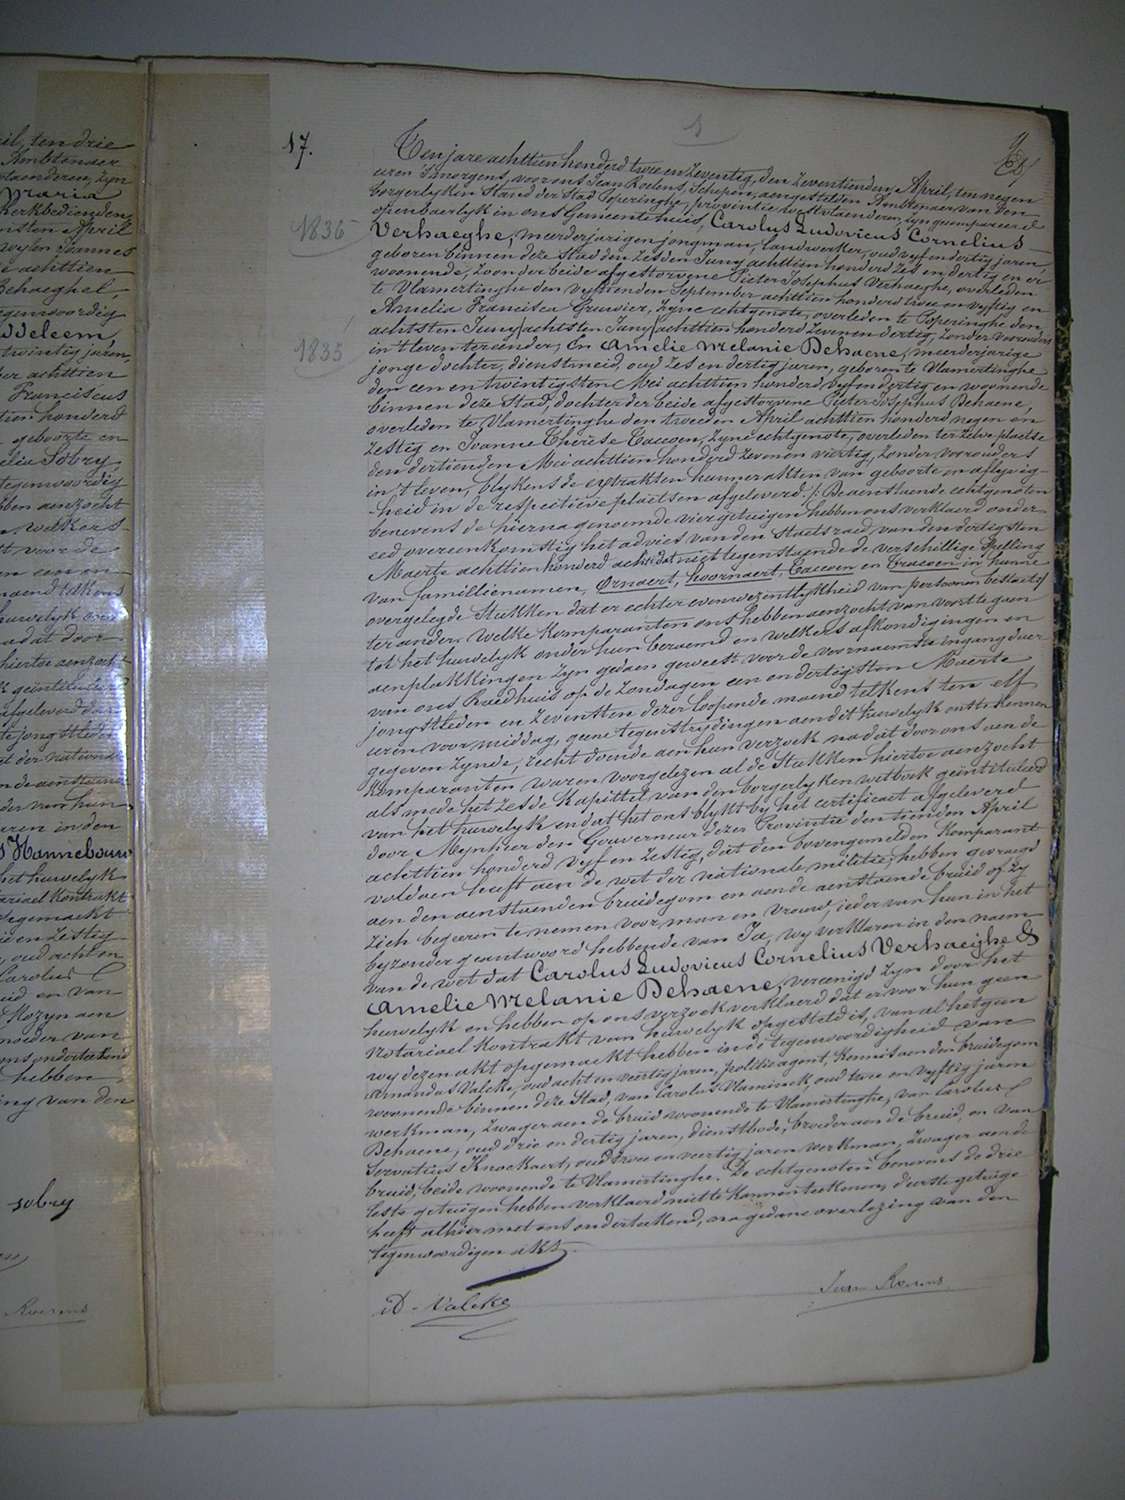 17.
1836
1835
Ten jare achttien honderd twee en zeventig, den zeventienden April, ten negen
uren s'morgens, voor ons Jean Roelens, Schepen, aengestelden Ambtenaer van den
borgerlyken Stand der Stad Poperinghe, provintie Westvlaenderen, zyn gecompareerd
openbaerlyk in ons Gemeentehuis, Carolus Ludovicus Cornelius
Verhaeghe, meerderjarigen jongman, landwerker, oud vyf en dertig jaren,
geboren binnen deze Stad den zesden Juny achttien honderd zes en dertig en er
woonende, zoon der beide afgestorvene Pieter Josephus Verhaeghe, overleden
te Vlamertinghe den vyftienden September achttien honderd twee en vyftig en
Amelia Francisca Gruwier, zyne echtgenote, overleden te Poperinghe den
achtsten Juny achtsten Juny achttien honderd zeven en dertig, zonder voorouders
in 't leven ter eender; En Amelie Melanie Dehaene, meerderjarige
jonge dochter, dienstmeid, oud zes en dertig jaren, geboren te Vlamertinghe
den een en twintigsten Mei achttien honderd vyf en dertig en woonende
binnen deze Stad, dochter der beide afgestorvene Pieter Josephus Dehaene,
overleden te Vlamertinghe den tweeden April achttien honderd negen en
zestig en Joanne Thérèse Taccoen, zyne echtgenote, overleden ter zelve plaetse
den dertienden Mei achttien honderd zeven en viertig, zonder voorouders
in 't leven, blykens de extrakten hunner akten van geboorte en aflyvig-
heid in de respectieve plaetsen afgeleverd. /: De aenstaende echtgenoten
benevens de hierna genoemde vier getuigen hebben ons verklaerd onder
eed overeenkomstig het advies van den Staetsraed van den dertigsten
Maerte achttien honderd acht dat niettegenstaende de verschillige spelling
van familienamen, Ornaert, hoornaert, Taccoen en Traccoen in hunne
overgelegde Stukken dat er echter evenwezentlykheid van persoonen bestaet :/
ter ander, welke komparanten ons hebben aenzocht van voort te gaen
tot het huwelyk onder hun beraemd en welkers afkondigingen en
aenplakkingen zyn gedaen geweest voor de voornaemste ingangdeur
van ons Raedhuis op de zondagen een en dertigsten Maerte
jongstleden en zeventien dezer loopende maend telkens ten elf
uren voormiddag, geene tegenstrydingen aen dit huwelyk ons te kennen
gegeven zynde, recht doende aen hun verzoek na dat door ons aen de
komparanten waren voorgelezen al de Stukken hiertoe aenzocht
als mede het zesde kapittel van den borgerlyken wetboek geïntituleerd
van het huwelyk en dat het ons blykt by het certificaet afgeleverd
door Mynheer den Gouverneur dezer Provintie den tienden April
achttien honderd vyf en zestig, dat den bovengemelden komparant
voldaen heeft aen de wet der nationale militie, hebben gevraegd
aen den aenstaenden bruidegom en aen de aenstaende bruid of zy
zich begeeren te nemen voor man en vrouw, ieder van hun in het
byzonder geantwoord hebbende van Ja, wy verklaren in den naem
van de wet dat Carolus Ludovicus Cornelius Verhaeghe &
Amelie Melanie Dehaene, vereenigd zyn door het
huwelyk en hebben op ons verzoek verklaerd dat er voor hun geen
notariael kontrakt van huwelyk opgesteld is, van al het geen
wy dezen akt opgemaekt hebben in de tegenwoordigheid van
Amandus Valcke, oud acht en veertig jaren, politie agent, kennis aen den bruidegom
woonende binnen deze Stad, van Carolus Vlaminck, oud twee en vyftig jaren
werkman, zwager aen de bruid woonende te Vlamertinghe, van Carolus L
Dehaene, oud drie en dertig jaren, dienstbode, broeder aen de bruid, en van
Servatius Knockaert, oud twee en veertig jaren werkman, zwager aen de
bruid, beide woonende te Vlamertinghe. De echtgenoten benevens de drie
leste getuigen hebben verklaerd niet te konnen teekenen, d'eerste getuige
heeft alhier met ons onderteekend, na gedane overlezing van den
tegenwoordigen akt.
A. Valcke
Jean Roelens